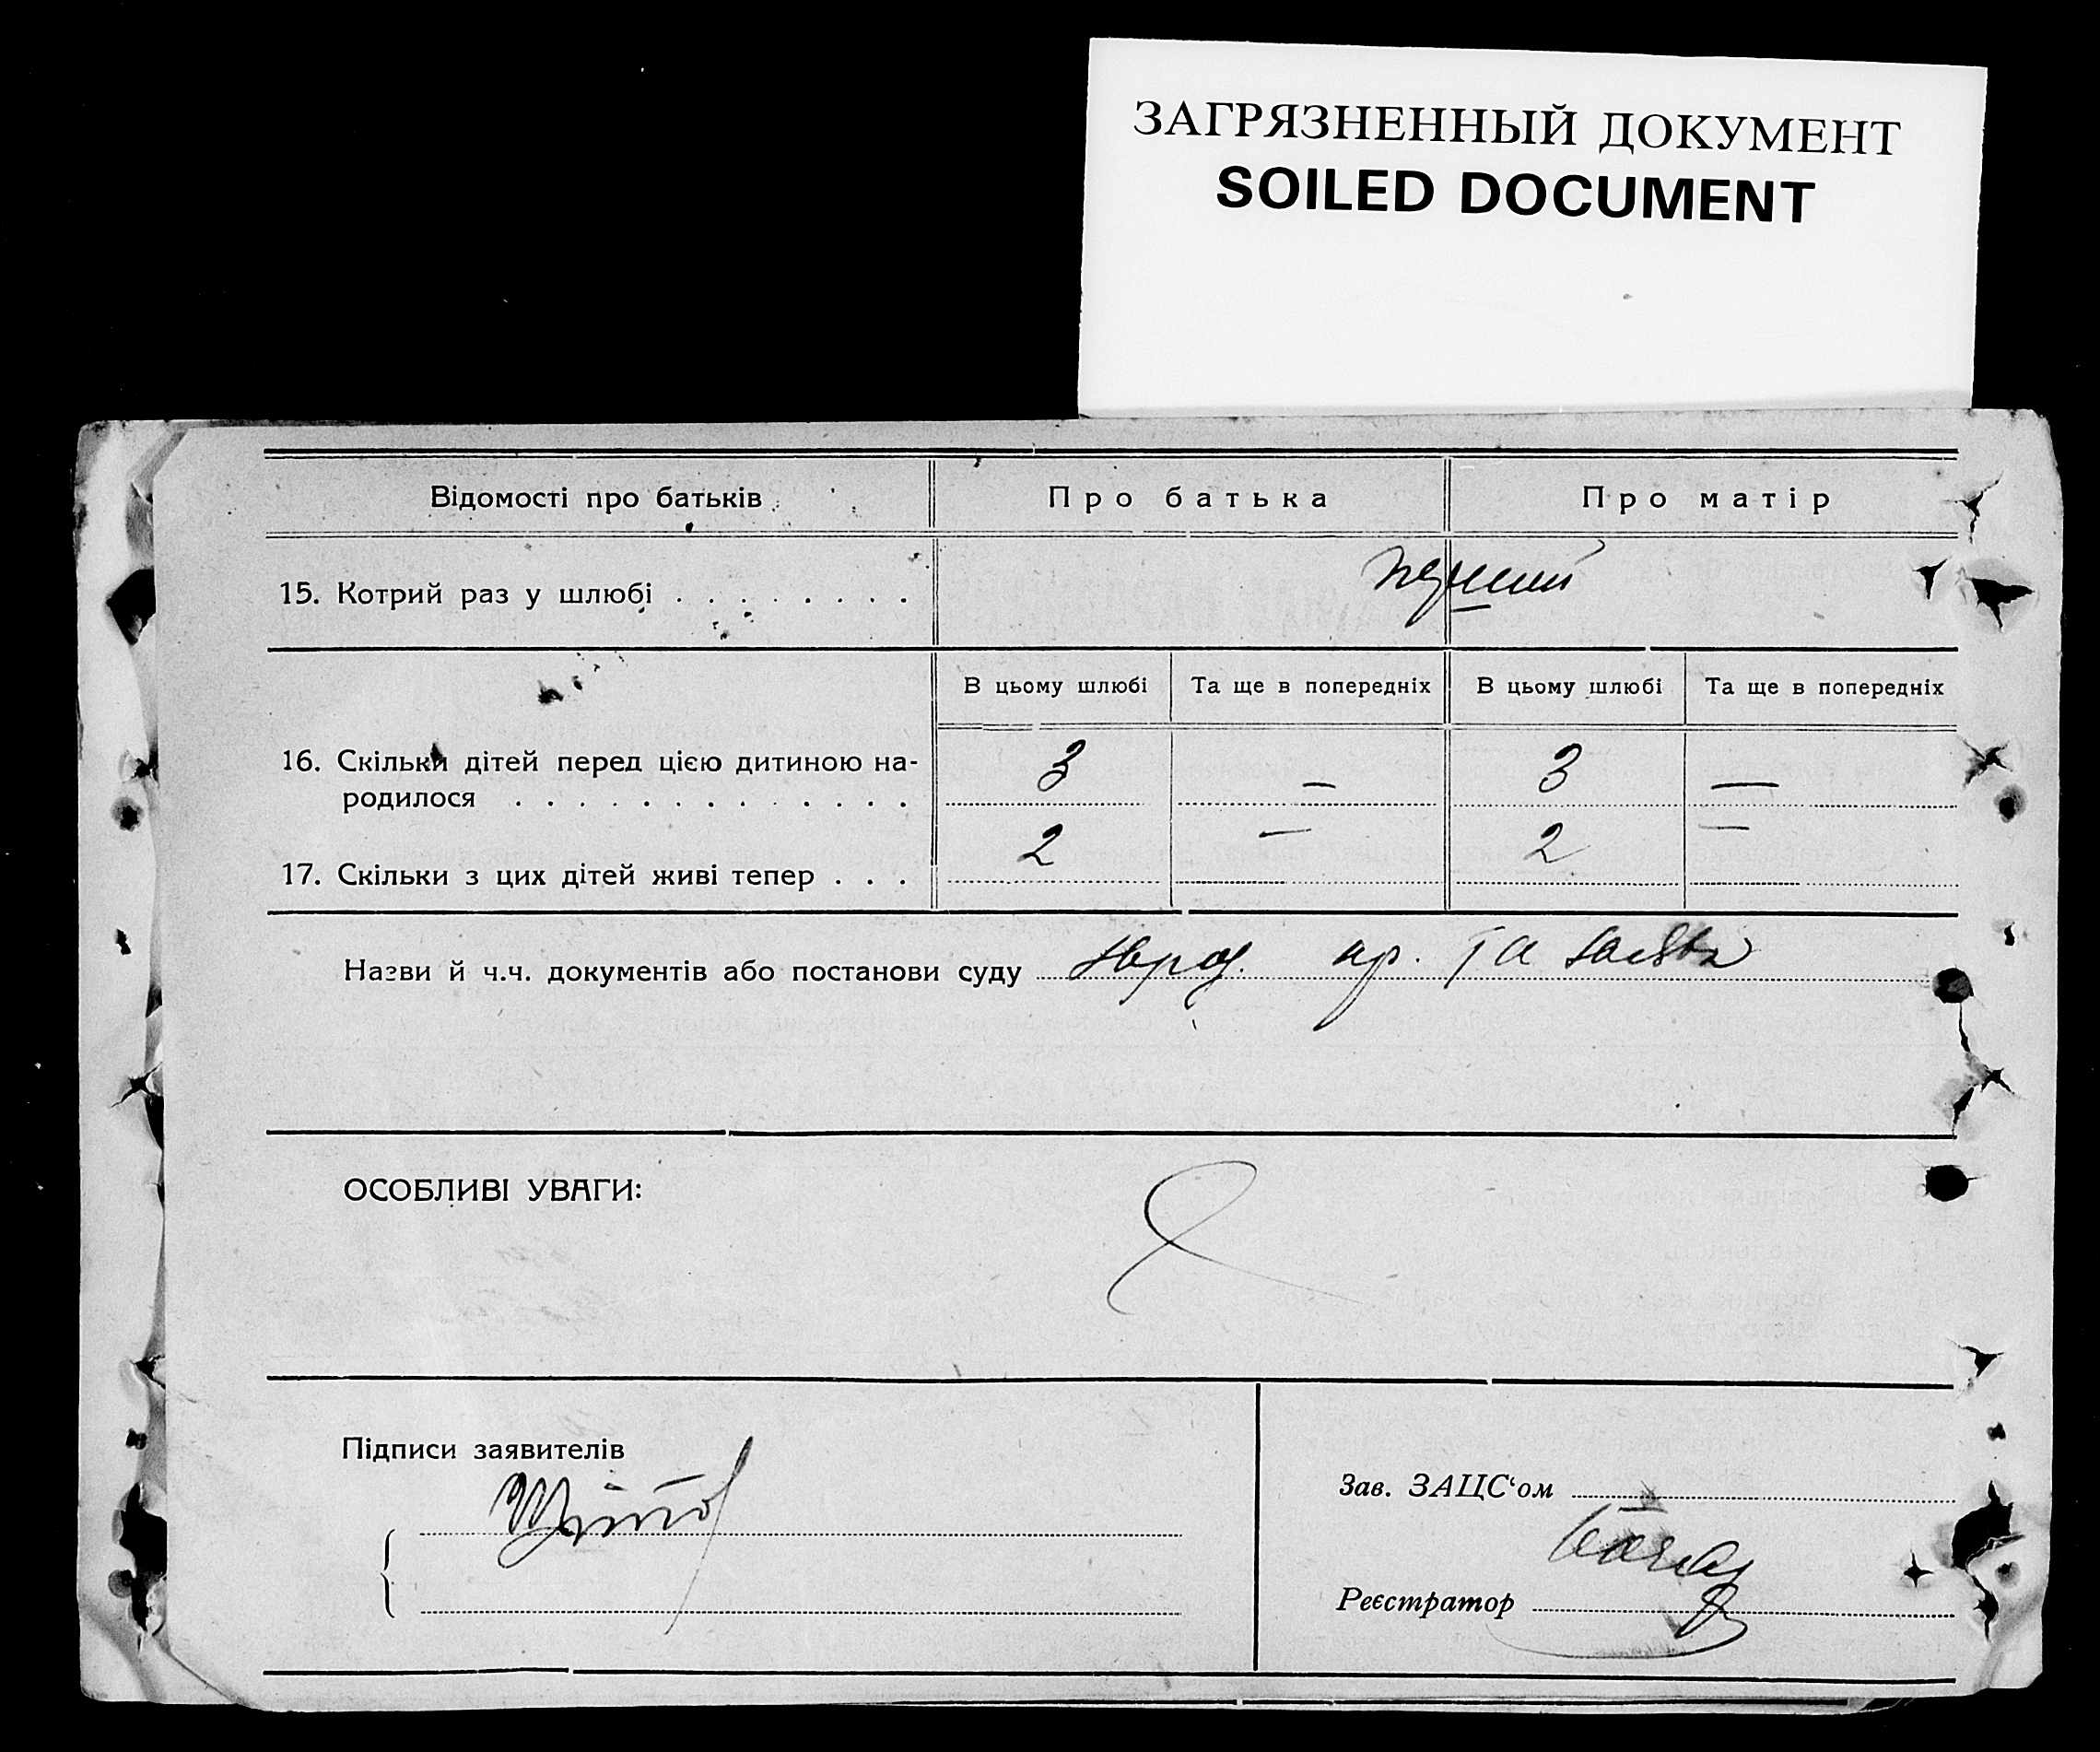 ЗАГРЯЗНЕННЫЙ ДОКУМЕНТ
SOILED DOCUMENT
Відомості про батьків
Про батька
Про матір
15. Котрий раз у шлюбі . . . . . . . .
перший
В цьому шлюбі
Та ще в попередніх
В цьому шлюбі
Та ще в попередніх
16. Скільки дітей перед цією дитиною на-
родилося . . . . . . . . . . . . .
3 — 3 —
17. Скільки з цих дітей живі тепер . . .
2 — 2 —
Назви й ч.ч. документів або постанови суду та
ОСОБЛИВІ УВАГИ:
Підписи заявителів
Зав. ЗАЦС‘ом
Реєстратор